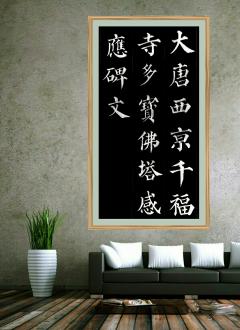 大唐西京千福
寺多寶佛塔感
應碑文